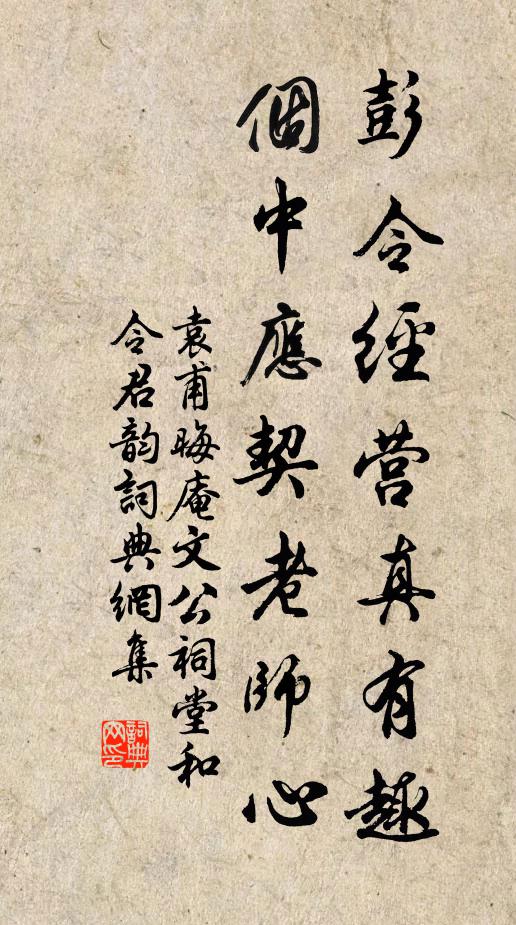 彭令經营真有趣
個中應契老師心
袁甫晦庵文公祠堂和
令君韵詞典網集
詞典网印